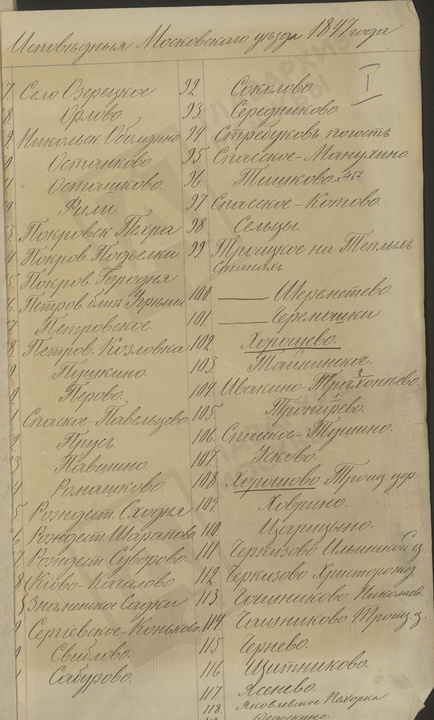 Исповѣдныя Московскаго уѣзда 1847 года
I
7 Село Озерецкое
8 Орлово
9 Никольск. Оболдино
Останково
Осташково.
Фили.
3 Покровск. Пехра
4 Покров. Подъелки
5 Покров. Городня
6 Петров. близ
7 Петровское.
8 Петров. Козловка
9 Пушкино
Перово.
1 Спаское-Павельцево
2 Прусъ.
3 Павшино.
4 Ромашково.
5 Рождест. Сходня
6 Рождест. Шарапова
7 Рождест. Суворово
8 Качалово
Знаменско Садки
Сергіевское-Коньково.
Свиблово.
1 Сабурово.
92 Соколово.
93 Середниково.
94 погостъ
95 Спасское-Манухино
96. Тишково.
97 Спасское-Котово.
98. Сельцы.
99 Троицкое на Теплыхъ
Станахъ
100. —— Шереметево
101. —— Черемошки
102. Хорошево.
103 Тайнинское.
104. Ивакино
105 Тропарево.
106. Спасское Тушино.
107. Усково.
108. Хорошово Троиц. цер.
109 Ховрино.
110. Царицыно.
111 Черкизово Ильинской ц
112. Черкизово Христорожд
113. Чашниково Николаев.
114. Чашниково Троиц. ц.
115 Чернево.
116 Щитниково.
117 Ясенево.
118. Яковлевское Пехорка